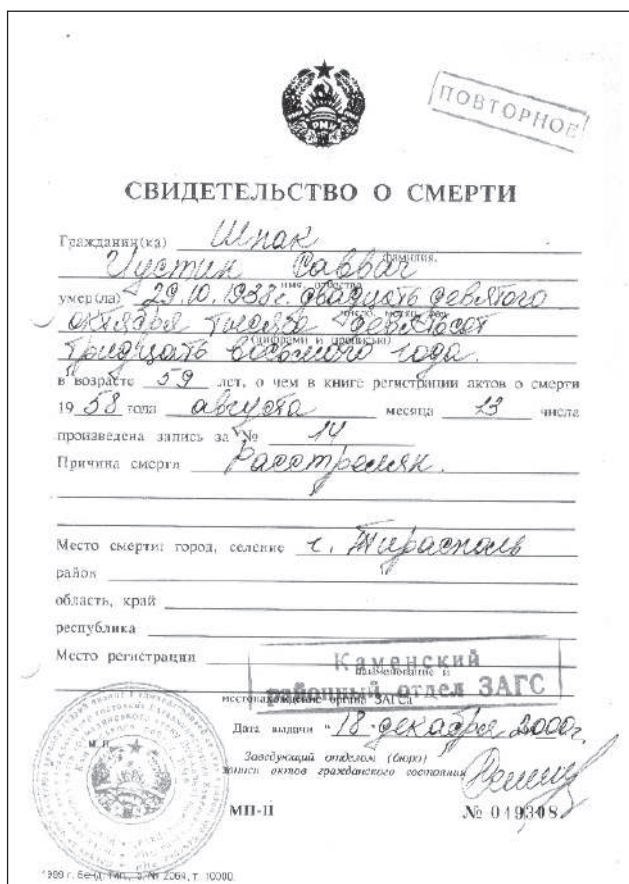 ПМР
ПОВТОРНОЕ
СВИДЕТЕЛЬСТВО О СМЕРТИ
Гражданин(ка) Шпак
фамилия,
Иустин Саввич
имя, отчество
умер(ла) 29.10.1938г. двадцать девятого
число, месяц, год
октября тысяча девятьсот
(цифрами и прописью)
тридцать восьмого года.
в возрасте 59 лет, о чем в книге регистрации актов о смерти
19 58 года августа месяца 13 числа
произведена запись за № 14
Причина смерти Расстрелян.
Место смерти: город, селение г. Тирасполь
район
область, край
республика
Место регистрации Каменский
наименование и
районный отдел ЗАГС
местонахождение органа ЗАГСа
Дата выдачи "18" декабря 2000г.
М П
Заведующий отделом (бюро)
записи актов гражданского состояния
МП-II № 049308
1999 г. Бенд. тип., з. № 2064, т. 10000.